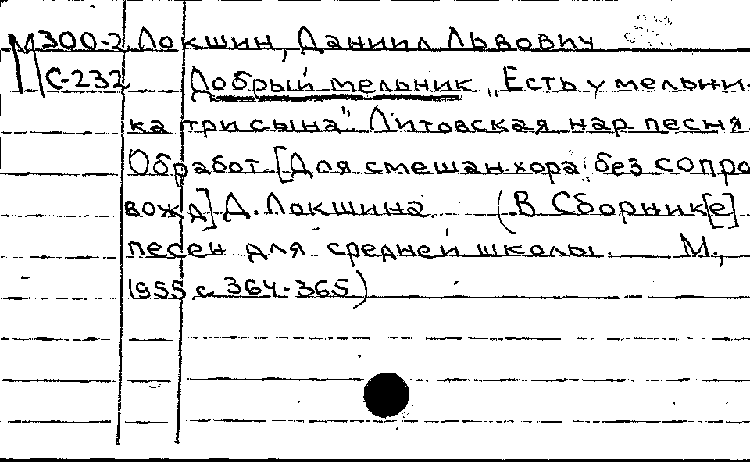 М300-2 Локшин, Даниил Львович
С-232 Добрый мельник „Есть у мельни-
ка три сына". Литовская нар песня
Обработ. [Для смешан хора без сопро
вожд] Д. Локшина (В Сборник[е]
песен для средней школы. М.,
1955 с. 364-365)